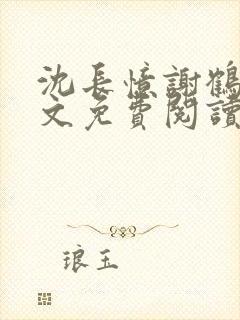 沈長憶謝鶴
文免費閱讀
琅玉